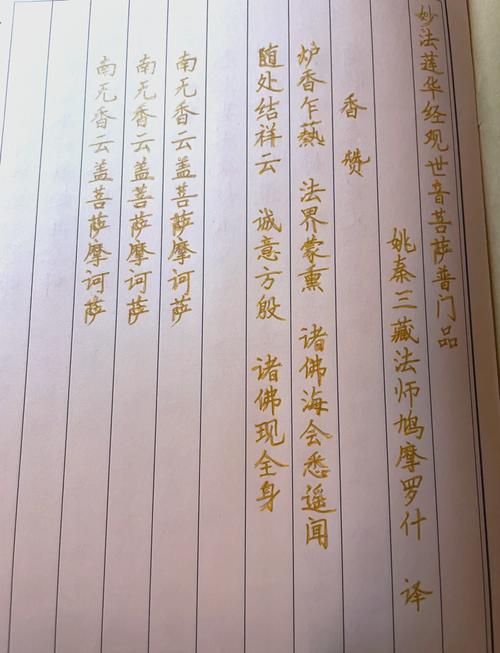 妙法莲华经观世音菩萨普门品
姚秦三藏法师鸠摩罗什 译
香赞
炉香乍爇 法界蒙熏 诸佛海会悉遥闻
随处结祥云 诚意方殷 诸佛现全身
南无香云盖菩萨摩诃萨
南无香云盖菩萨摩诃萨
南无香云盖菩萨摩诃萨